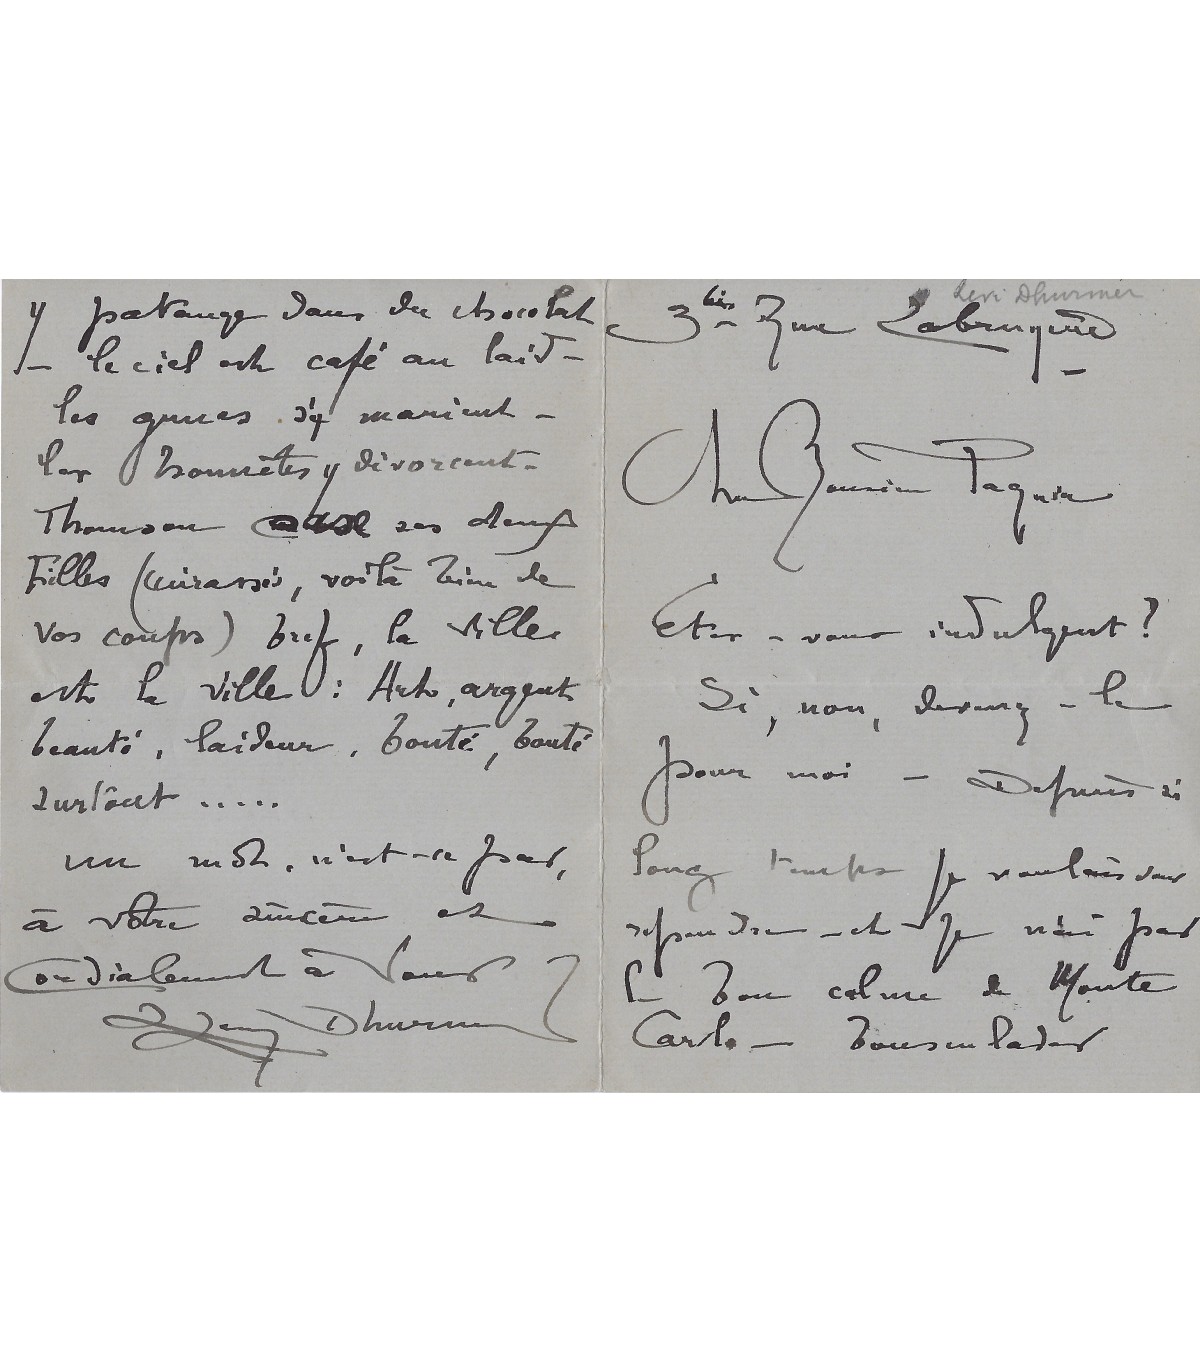 Levi Dhurmer
3bis Rue Labruyère
Cher Monsieur Paquin
Êtes-vous indulgent?
Si, non, devenez-le
pour moi - Depuis si
long temps je voulais vous
répondre - et je n'ai pas
le bon calme de Monte
Carlo -
y patauge dans du chocolat
- le ciel est café au lait -
les grues s'y marient -
les honnêtes y divorcent -
Thomson ses deux
Filles (cuirassés, voilà bien de
vos coups) bref, la ville
est la ville : Art, argent
beauté, laideur, bonté, bonté
surtout .....
un mot, n'est-ce pas,
à votre sincère et
Cordialement à Vous
Levy Dhurmer